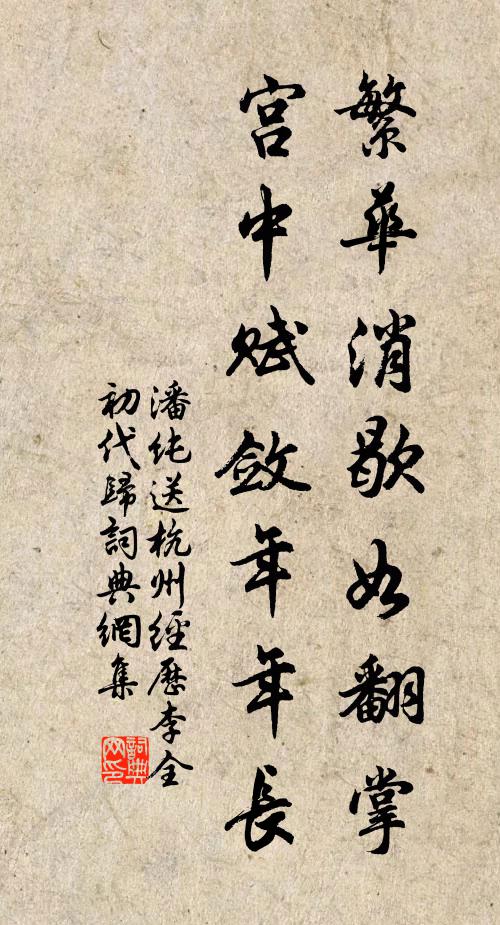 繁華消歇如翻掌
宮中賦斂年年長
潘純送杭州經歷李全
初代歸詞典網集
詞典
网印